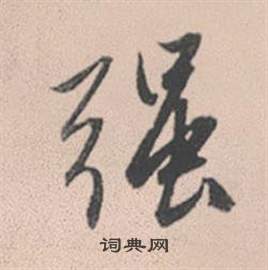 强
词典网